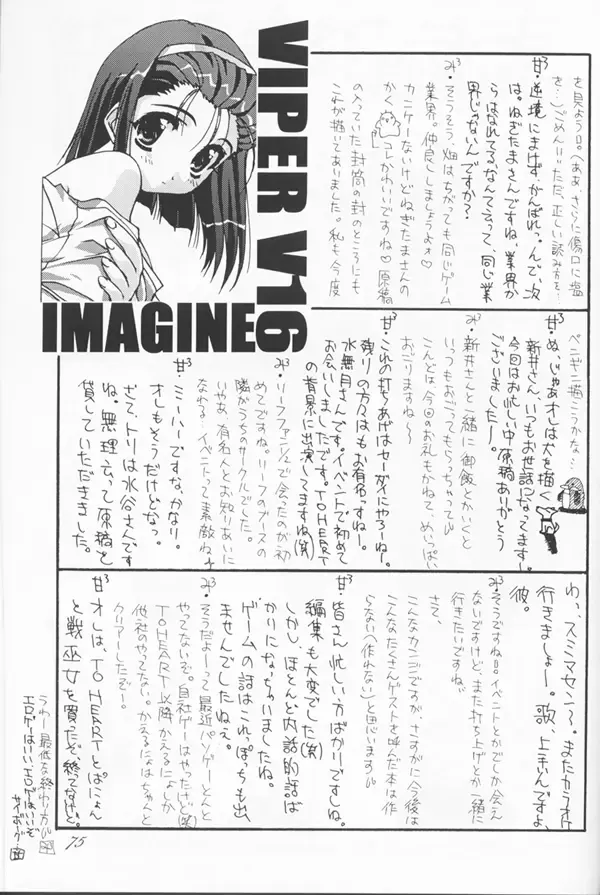 VIPER V16
IMAGINE
を見ようβ。(ああ、さらに傷口に塩
を…)ごめん!!ただ、正しい読み方を…
甘³・逆境にまけず、かんばれっ。んで、次
は。ねぎたまさんですね、業界か
らはなれてるなんて云って、同じ業
界じゃないんですか?
み³・そうそう、畑はちがっても同じゲーム
業界。仲良ししましょうよぉ♡
カンケーないけどねぎたまさんの
かく コレかわいいですね♡原稿
の入っていた封筒の封のところにも
これが描いてありました。私も今度
ペンギン描こうかな…
甘³・ぬ、じゃあオレは犬を描く
新井さん、いつもお世話になってます。
今回はお忙しい中原稿ありがとう
ございましたー。
み³・新井さんと一緒に御飯とかいくと
いっつもおごってもらっちゃってし
こんどは、今回のお礼もかねて、めいっぱい
おごりますね〜
甘³・これの打ちあげはセーダイにやろーね。
残りの方々はもお有名っすねー。
水無月さんです。イベントで初めて
お会いしましたです。TO HEART
の背景に出演してますね(笑)
み³・リーフファンジンで会ったのが初
めてですね。リーフのブースの
隣がうちのサークルでした。
いやぁ、有名人とお知りあいに
なれる…イベントって素敵ねっ
甘³・ミーハーですな、かなり。
オレもそうだけどなっ。
さて、トリは水谷さんです
ね。無理云って原稿を
貸していただきました。
わぃ、スミマセン〜。またカラオケ
行きましょー。歌、上手いんですよ、
彼。
み³・そうですねβイベントとかでしか会え
ないですけど、また打ち上げとか一緒に
行きたいですね。
さて、
こんなカンジですが、さすがに今後は
こんなたくさんゲストを呼んだ本は作
らない(作れない)と思います
甘³・皆さん忙しい方ばかりですしね。
編集も大変でした(笑)
しかし、ほとんど内話的話ば
かりになっちゃいましたね。
ゲームの話はこれっぽっちも出
ませんでしたねぇ。
み³・そうだよーって最近パソゲーとんと
やってないぞ。自社ゲーはやったけど(笑)
TO HEART以降かえるにょしか
他社のやってない。かえるにょはちゃんと
クリアーしたぞー。
甘³・オレは、TO HEARTとぱにょん
と戦巫女を買ったぞ、終ってないけど。
うわー最低な終わり方
エロゲーはいいエロゲはいいぞ
75